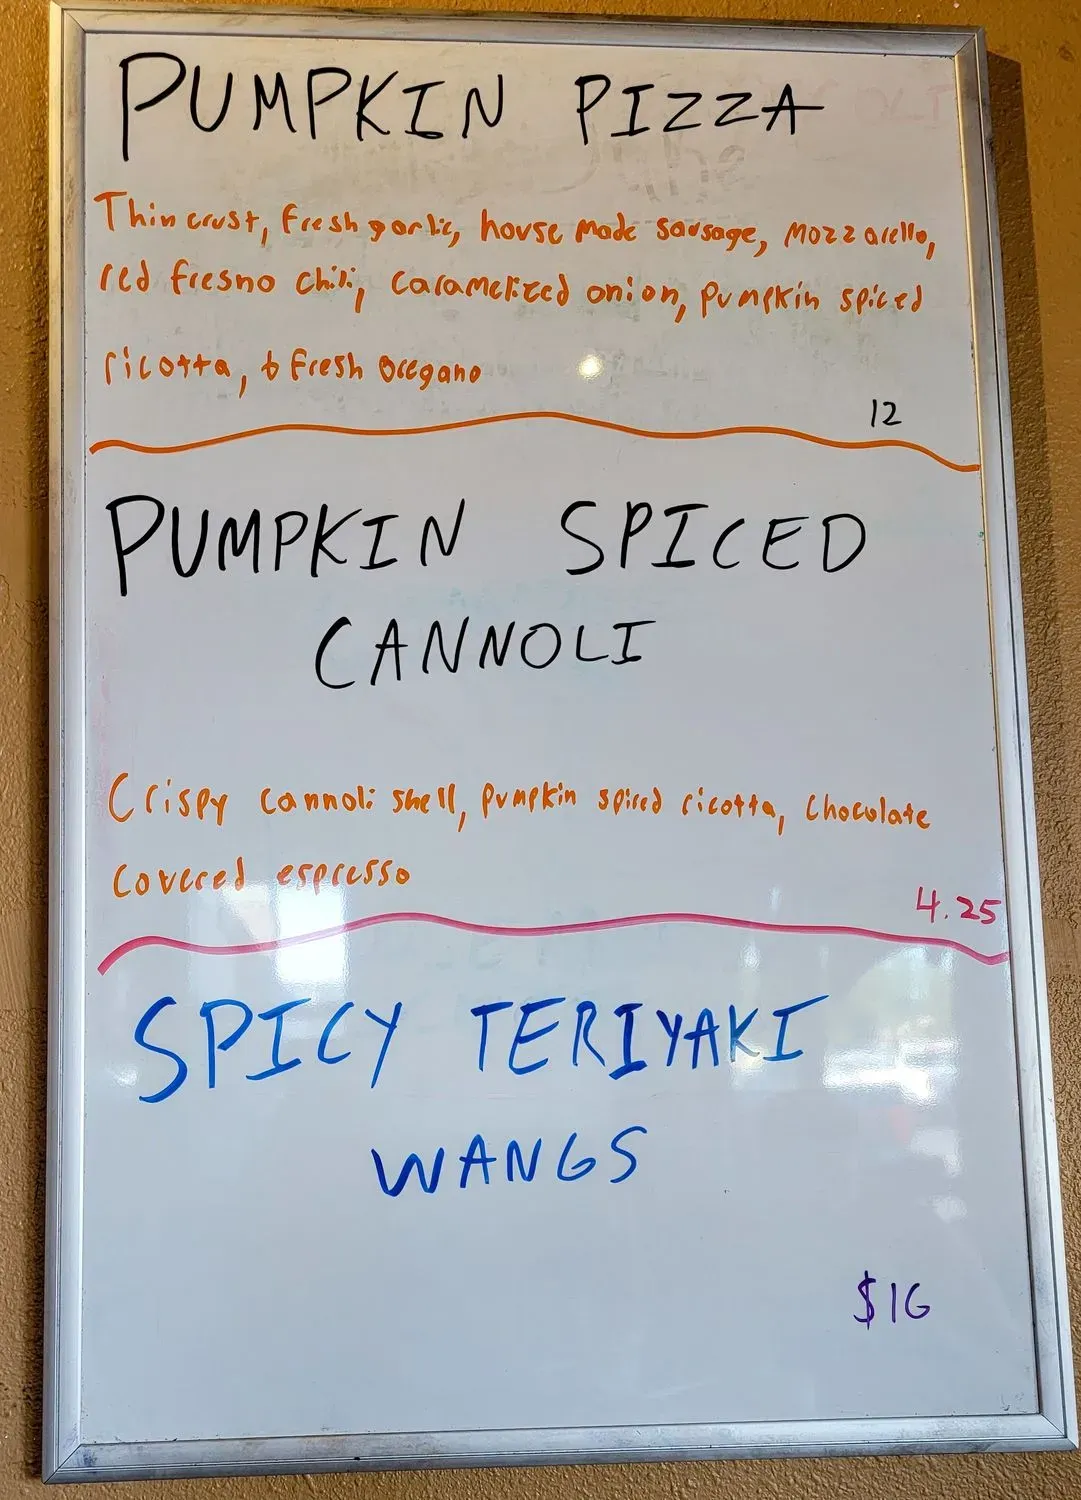 PUMPKIN PIZZA
Thin crust, fresh garlic, house made sausage, mozzarella,
red fresno chili, caramelized onion, pumpkin spiced
ricotta, & fresh oregano
12
PUMPKIN SPICED
CANNOLI
Crispy cannoli shell, pumpkin spiced ricotta, chocolate
covered espresso
4.25
SPICY TERIYAKI
WANGS
$16